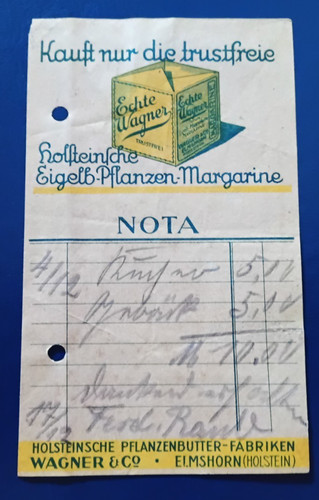 Kauft nur die trustfreie
Echte
Wagner
TRUSTFREI
Echte
Wagner
Holsteinsche
Eigelb-Pflanzen-Margarine
NOTA
4/12 Kuchen 5,00
Gebäck 5,00
M 10.00
Dankend erhalten
17/12 Ferd.
HOLSTEINSCHE PFLANZENBUTTER-FABRIKEN
WAGNER & CO • ELMSHORN (HOLSTEIN)